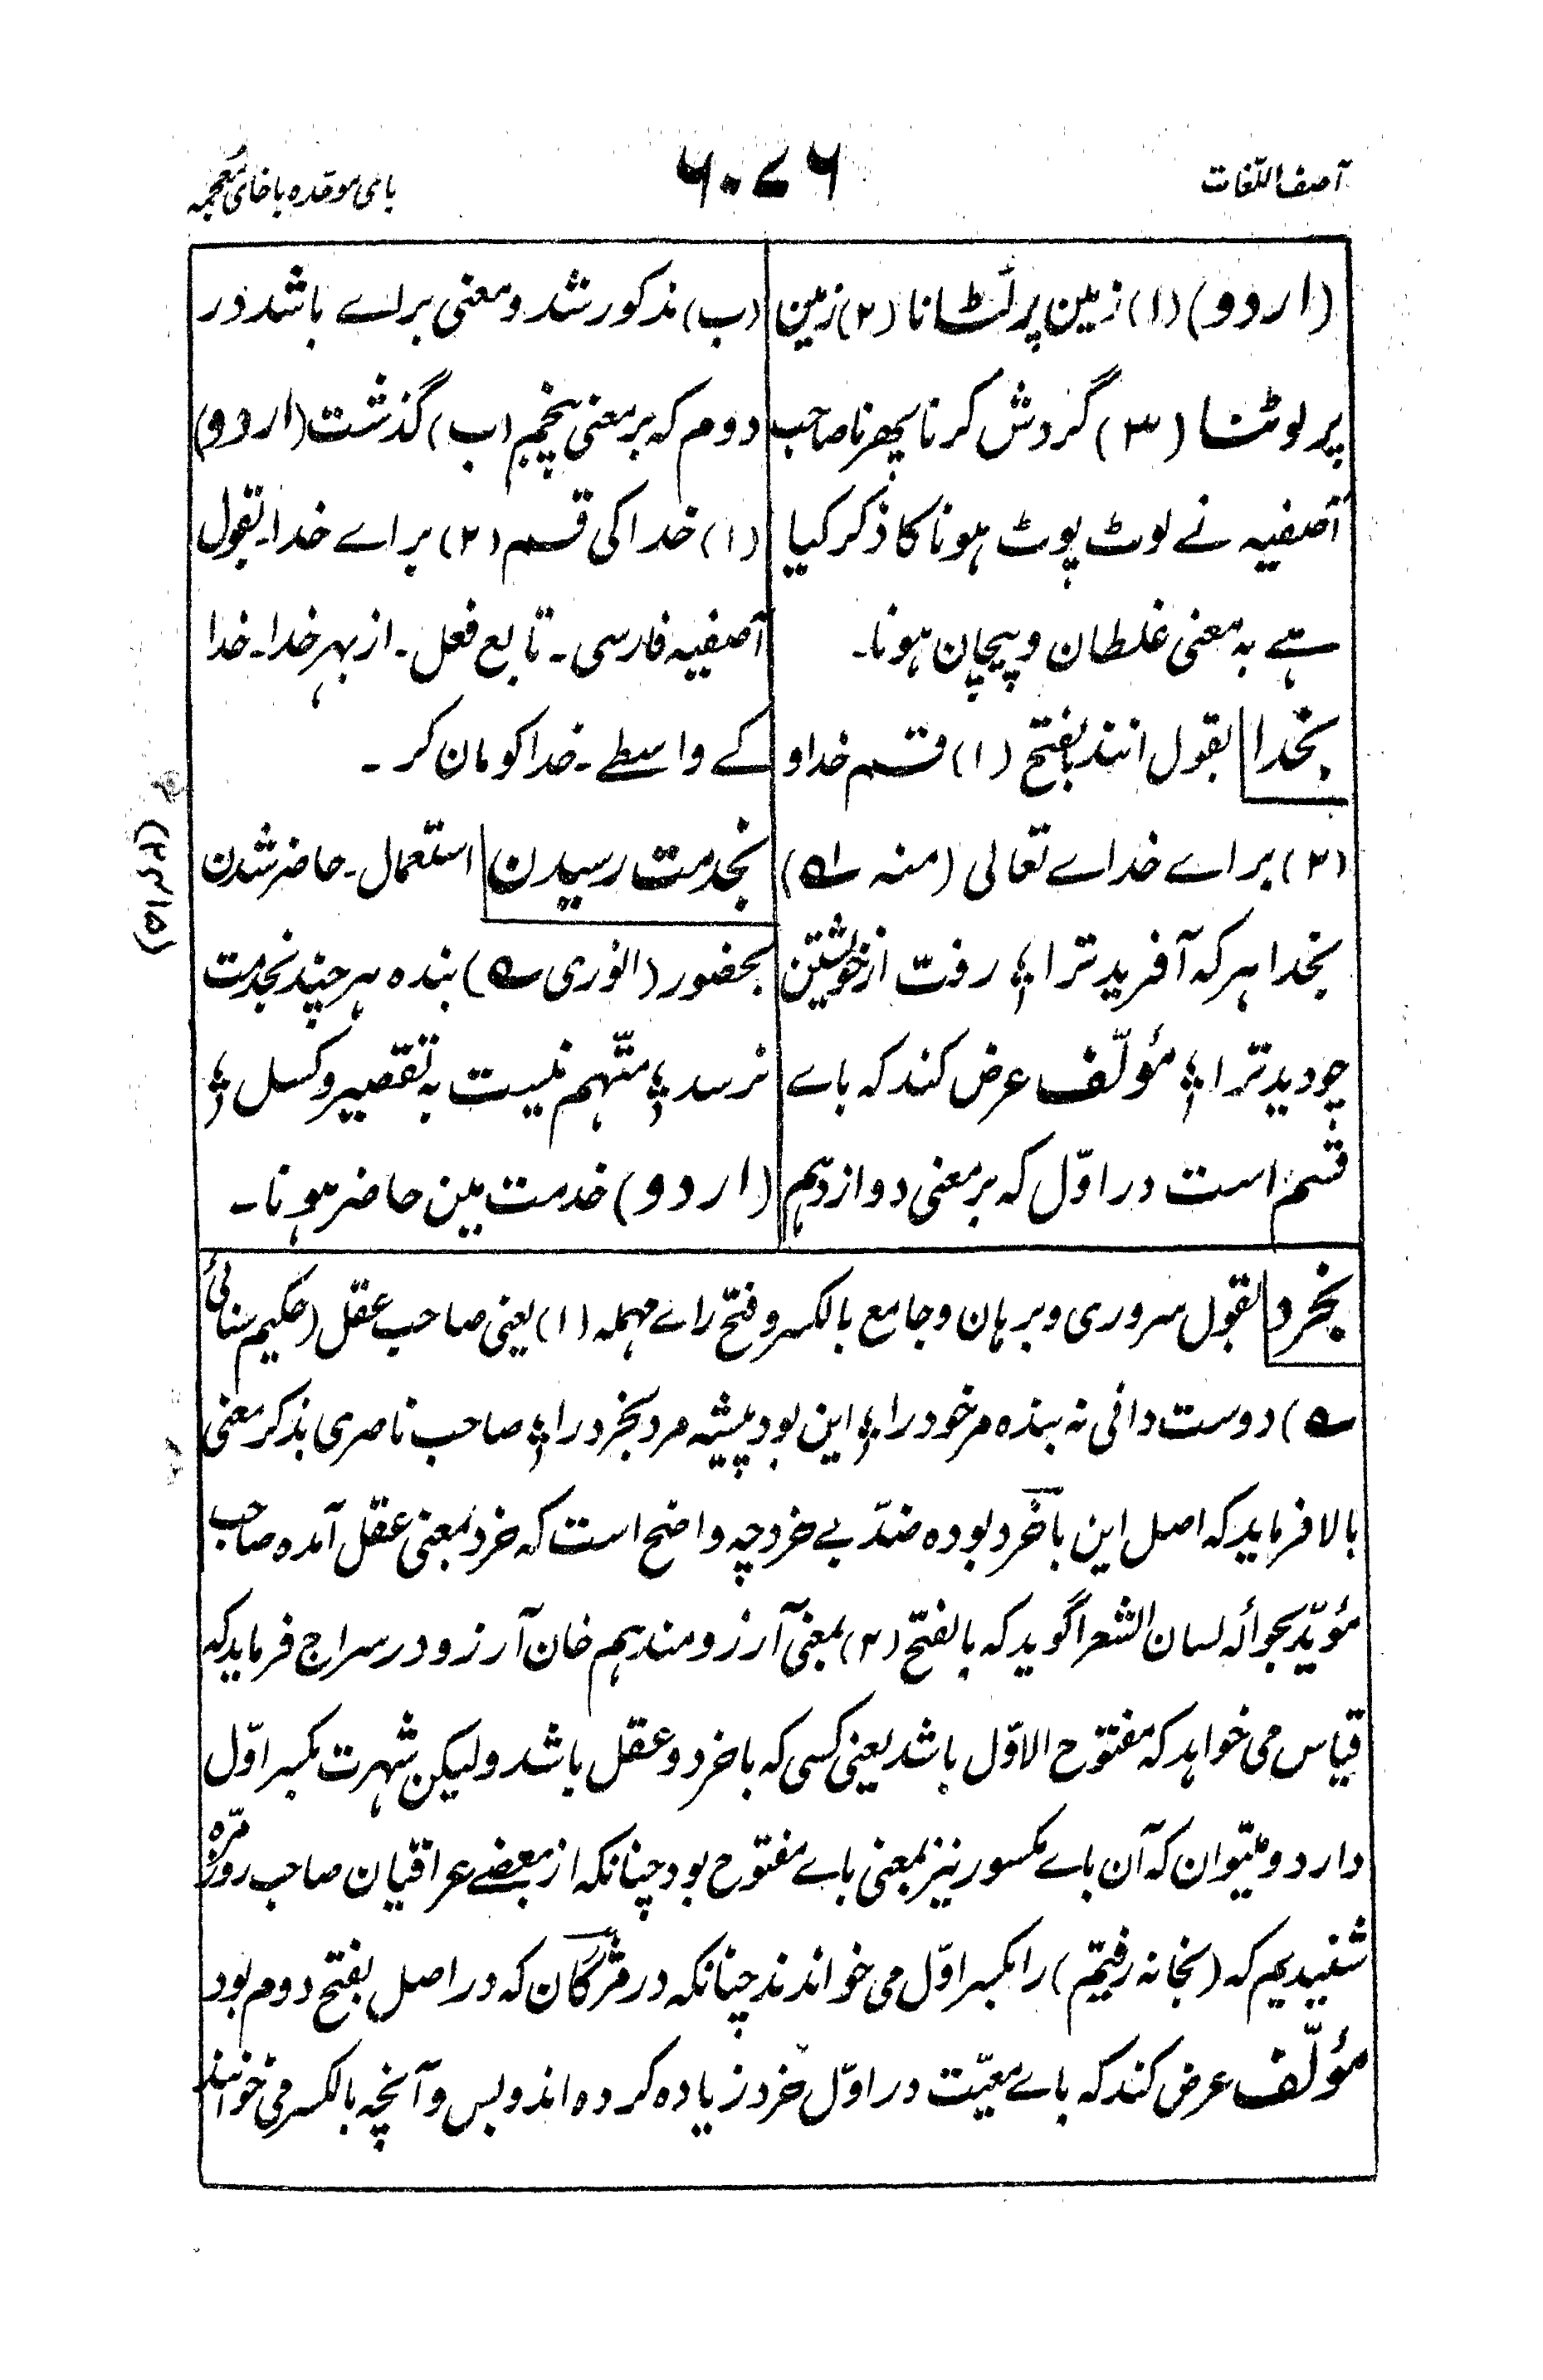 آصف اللّغات
۶۰۷۶
بای موحّده باخای معجمہ
(اردو) (۱) زمین پر لٹانا (۲) زمین
پر لوٹنا (۳) گردش کرنا پھرنا صاحب
آصفیہ نے لوٹ پوٹ ہونا کا ذکر کیا
ہے بہ معنی غلطان و پیچان ہونا۔
بخدا بقول انند بالفتح (۱) قسم خدا و
(۲) براے خداے تعالی (منہ ؎)
بخدا ہر کہ آفرید ترا ؛ رفت از خویشتن
چو دید ترا ؛ مؤلّف عرض کند کہ باے
قسم است در اوّل کہ بر معنی دوازدہم
(ب) مذکور شد و معنی براے باشد در
دوم کہ بر معنی پنجم (ب) گذشت (اردو)
(۱) خدا کی قسم (۲) براے خدا۔ بقول
آصفیہ فارسی ۔ تابع فعل ۔ از بہر خدا۔ خدا
کے واسطے ۔ خدا کو مان کر ۔
بخدمت رسیدن استعمال ۔ حاضر شدن
بحضور (انوری ؎) بندہ ہر چند بخدمت
نرسد ؛ متّہم نیست بہ تقصیر و کسل ؛
(اردو) خدمت مین حاضر ہونا ۔
بخرد بقول سروری و برہان و جامع بالکسر و فتح راے مہملہ (۱) یعنی صاحب عقل (حکیم سنائی
؎) دوست دانی نہ بندہ مر خود را ؛ این بود پیشہ مرد بخرد را ؛ صاحب ناصری بذکر معنی
بالا فرماید کہ اصل این باخرد بودہ ضدّ بے خرد چہ واضح است کہ خرد بمعنی عقل آمدہ صاحب
مؤیّد بحوالۂ لسان الشعرا گوید کہ بالفتح (۲) بمعنی آرزومند ہم خان آرزو در سراج فرماید کہ
قیاس می خواہد کہ مفتوح الاوّل باشد یعنی کسی کہ باخرد و عقل باشد ولیکن شہرت بکسر اوّل
دارد و میتوان کہ آن باے مکسور نیز بمعنی باے مفتوح بود چنانکہ از بعضے عراقیان صاحب روزمرّہ
شنیدیم کہ (بخانہ رفیتم) را بکسر اوّل می خواندند چنانکہ در مژگان کہ در اصل بفتح دوم بود
مؤلّف عرض کند کہ باے معیّت در اوّل خرد زیادہ کردہ اند و بس و آنچہ بالکسر می خوانند